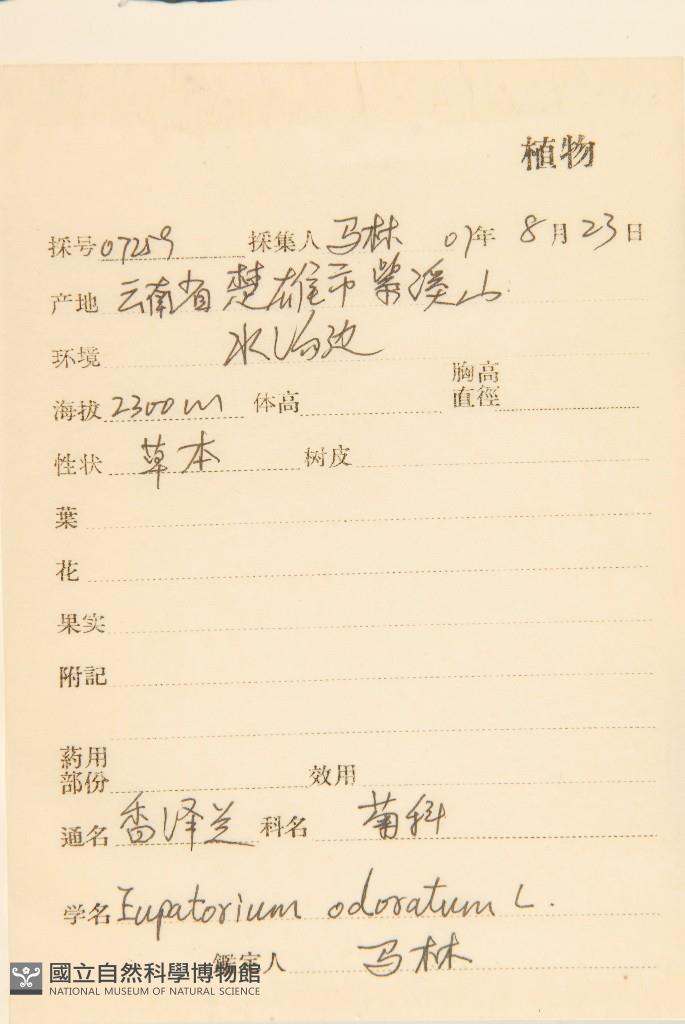 植物
採号 07259 採集人 马林 07年 8月23日
产地 云南省楚雄市紫溪山
环境 水沟边
海拔 2300m 体高 胸高直徑
性状 草本 树皮
葉
花
果实
附記
药用部份 效用
通名 香泽兰 科名 菊科
学名 Eupatorium odoratum L.
鑑定人 马林
國立自然科學博物館
NATIONAL MUSEUM OF NATURAL SCIENCE